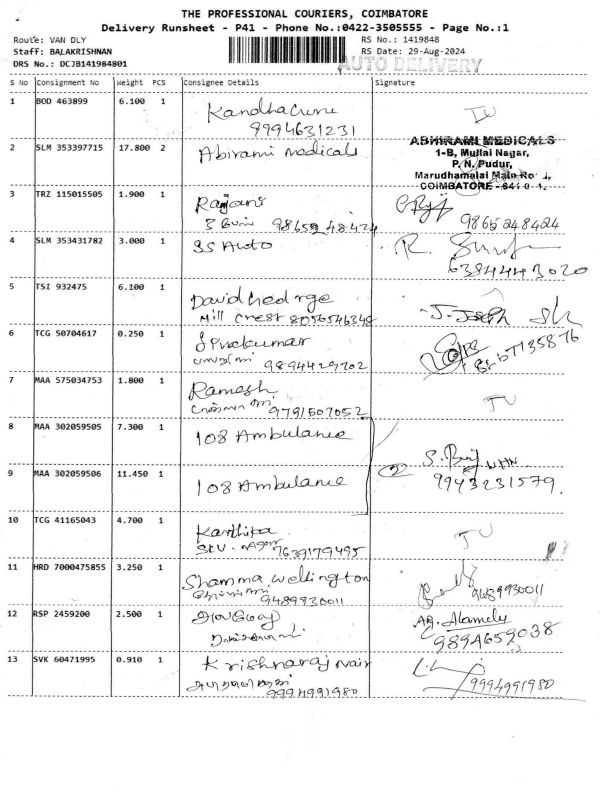 THE PROFESSIONAL COURIERS, COIMBATORE
Delivery Runsheet - P41 - Phone No.:0422-3505555 - Page No.:1
Route: VAN DLY RS No.: 1419848
Staff: BALAKRISHNAN RS Date: 29-Aug-2024
DRS No.: DCJB141984801 AUTO DELIVERY
S No Consignment No Weight PCS Consignee Details Signature
1 BOD 463899 6.100 1
9994631231
2 SLM 353397715 17.800 2 Abirami medicals
ABHIRAMI MEDICALS
1-B, Mullai Nagar,
P. N. Pudur,
Marudhamalai Main Ro
COIMBATORE
3 TRZ 115015505 1.900 1 Rajani
9865248424 9865248424
4 SLM 353431782 3.000 1 SS Auto
6384443020
5 TSI 932475 6.100 1 David
Mill Crest 8056546348
6 TCG 50704617 0.250 1 Sivakumar
9894429202
7 MAA 575034753 1.800 1 Ramesh
9791507052
8 MAA 302059505 7.300 1 108 Ambulance
9 MAA 302059506 11.450 1 108 Ambulance
9943231579.
10 TCG 41165043 4.700 1 Karthika
7639179495
11 HRD 7000475855 3.250 1 Shamma wellington
9489930011 9489930011
12 RSP 2459200 2.500 1
Alamelu
9894659038
13 SVK 60471995 0.910 1 Krishnaraj Nair
9994991980 9994991980